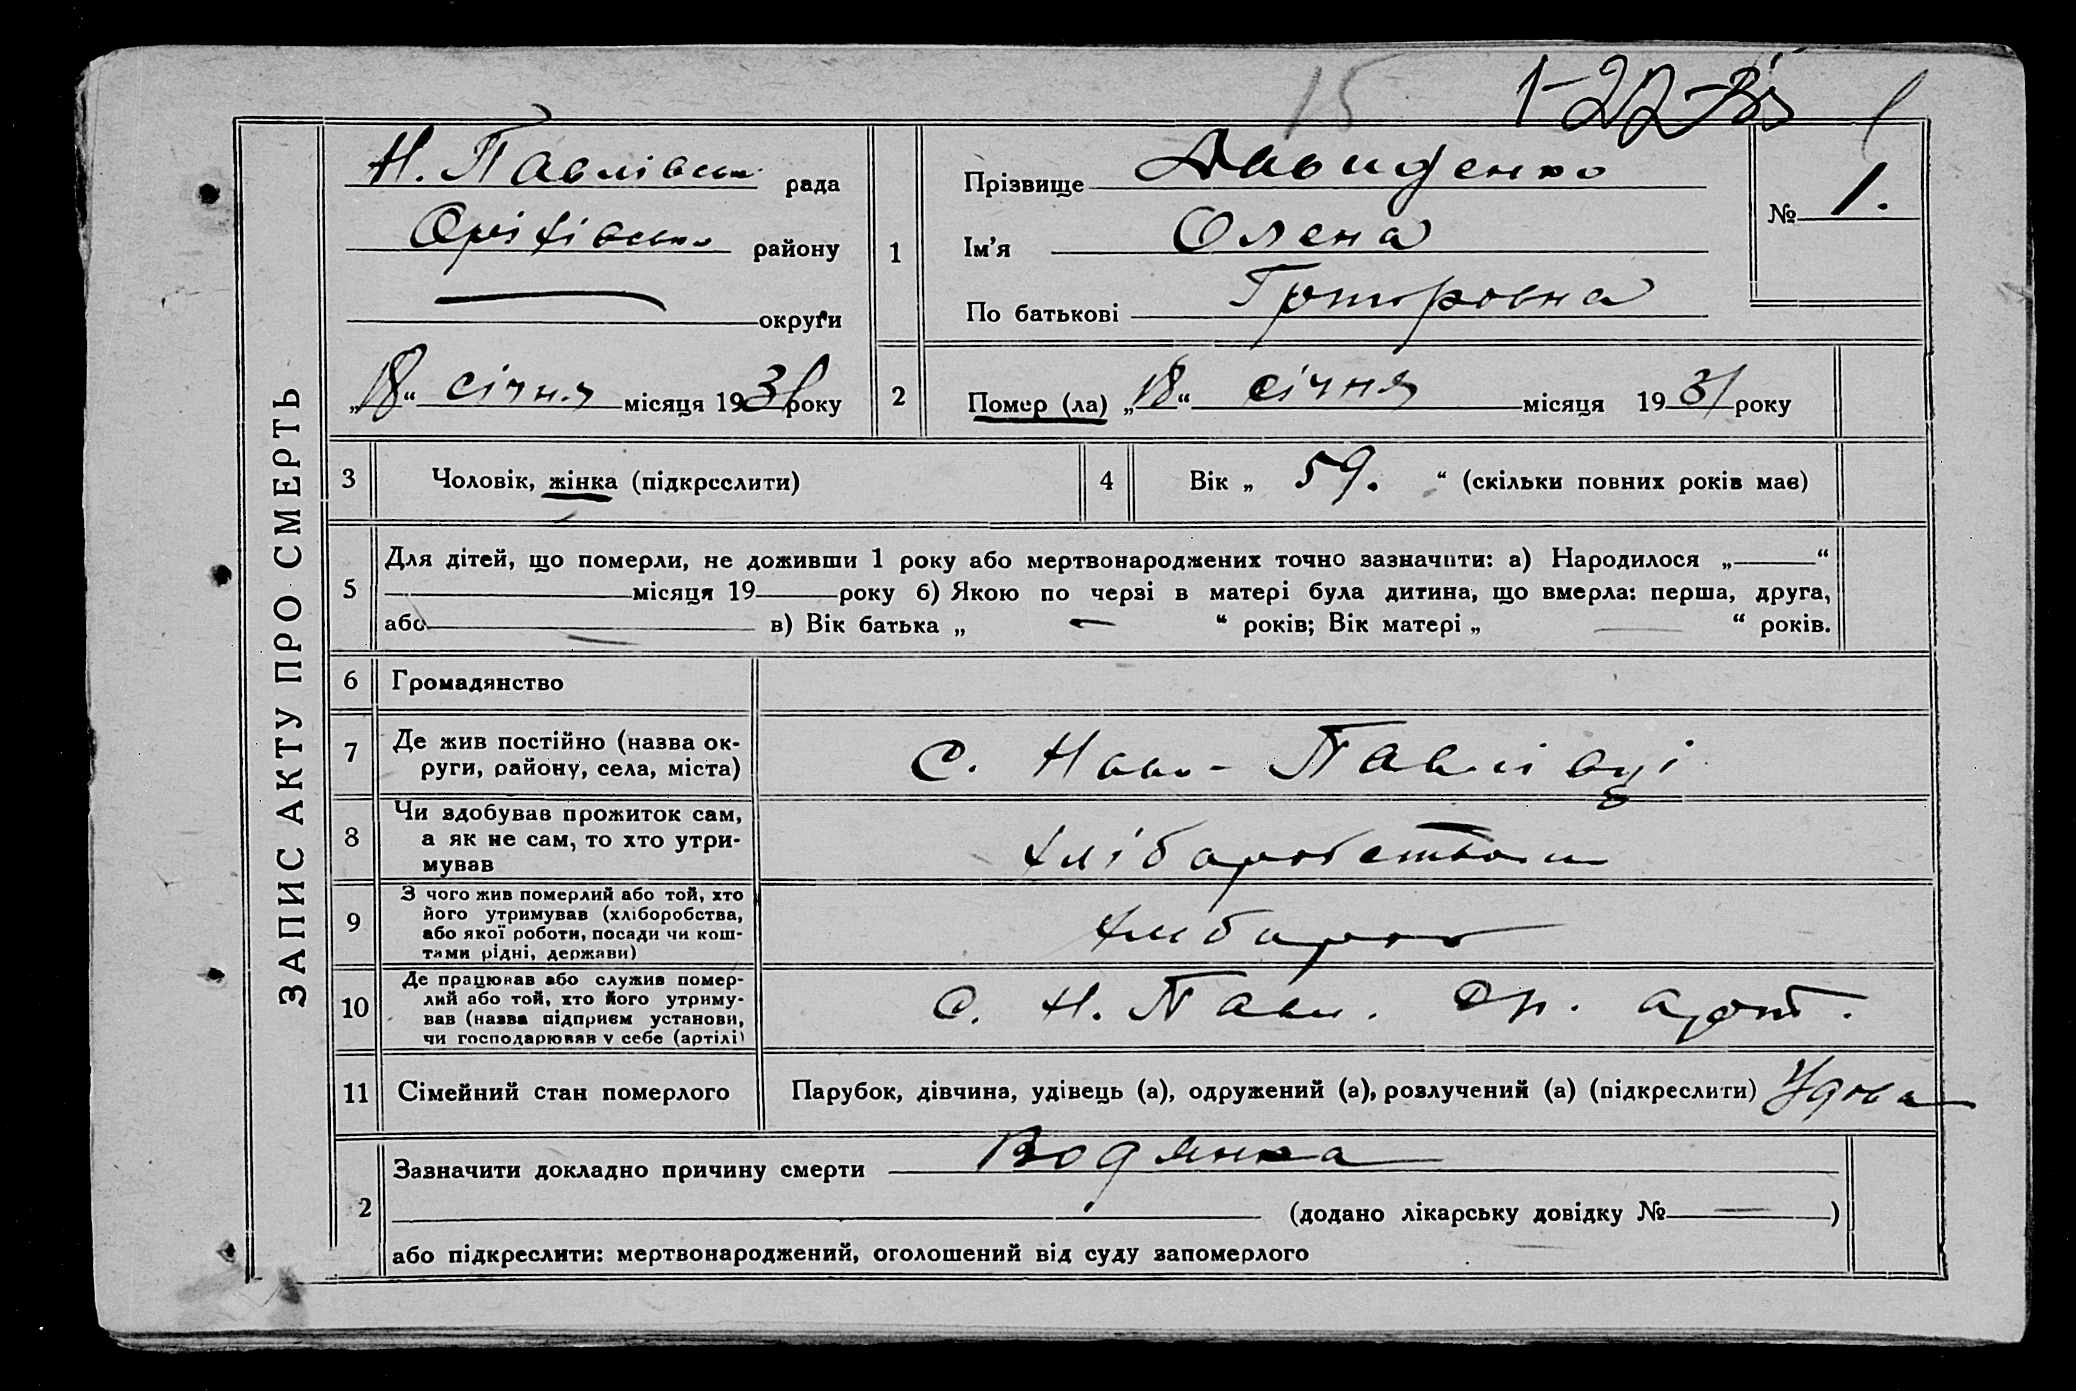 15 1-22-35
ЗАПИС АКТУ ПРО СМЕРТЬ
Н. Павлівськ рада
Оріхівськ району
округи
„18“ січня місяця 1931 року
1
Прізвище Давиденко
Ім'я Олена
По батькові Григоровна
№ 1.
2 Помер (ла) „18“ січня місяця 1931 року
3 Чоловік, жінка (підкреслити)
4 Вік „ 59. “ (скільки повних років має)
5 Для дітей, що померли, не доживши 1 року або мертвонароджених точно зазначити: а) Народилося „ “
місяця 19 року б) Якою по черзі в матері була дитина, що вмерла: перша, друга,
або в) Вік батька „ — “ років; Вік матері „ — “ років.
6 Громадянство
7 Де жив постійно (назва ок-
руги, району, села, міста)
С. Ново-Павлівці
8 Чи здобував прожиток сам,
а як не сам, то хто утри-
мував
хліборобством
9 З чого жив померлий або той, хто
його утримував (хліборобства,
або якої роботи, посади чи кош-
тами рідні, держави)
хлибороб
10 Де працював або служив помер-
лий або той, хто його утриму-
вав (назва підприєм установи,
чи господарював у себе (артілі)
С. Н. Павл.
11 Сімейний стан померлого
Парубок, дівчина, удівець (а), одружений (а), розлучений (а) (підкреслити) Удова
2 Зазначити докладно причину смерти Водянка
(додано лікарську довідку № — )
або підкреслити: мертвонароджений, оголошений від суду запомерлого